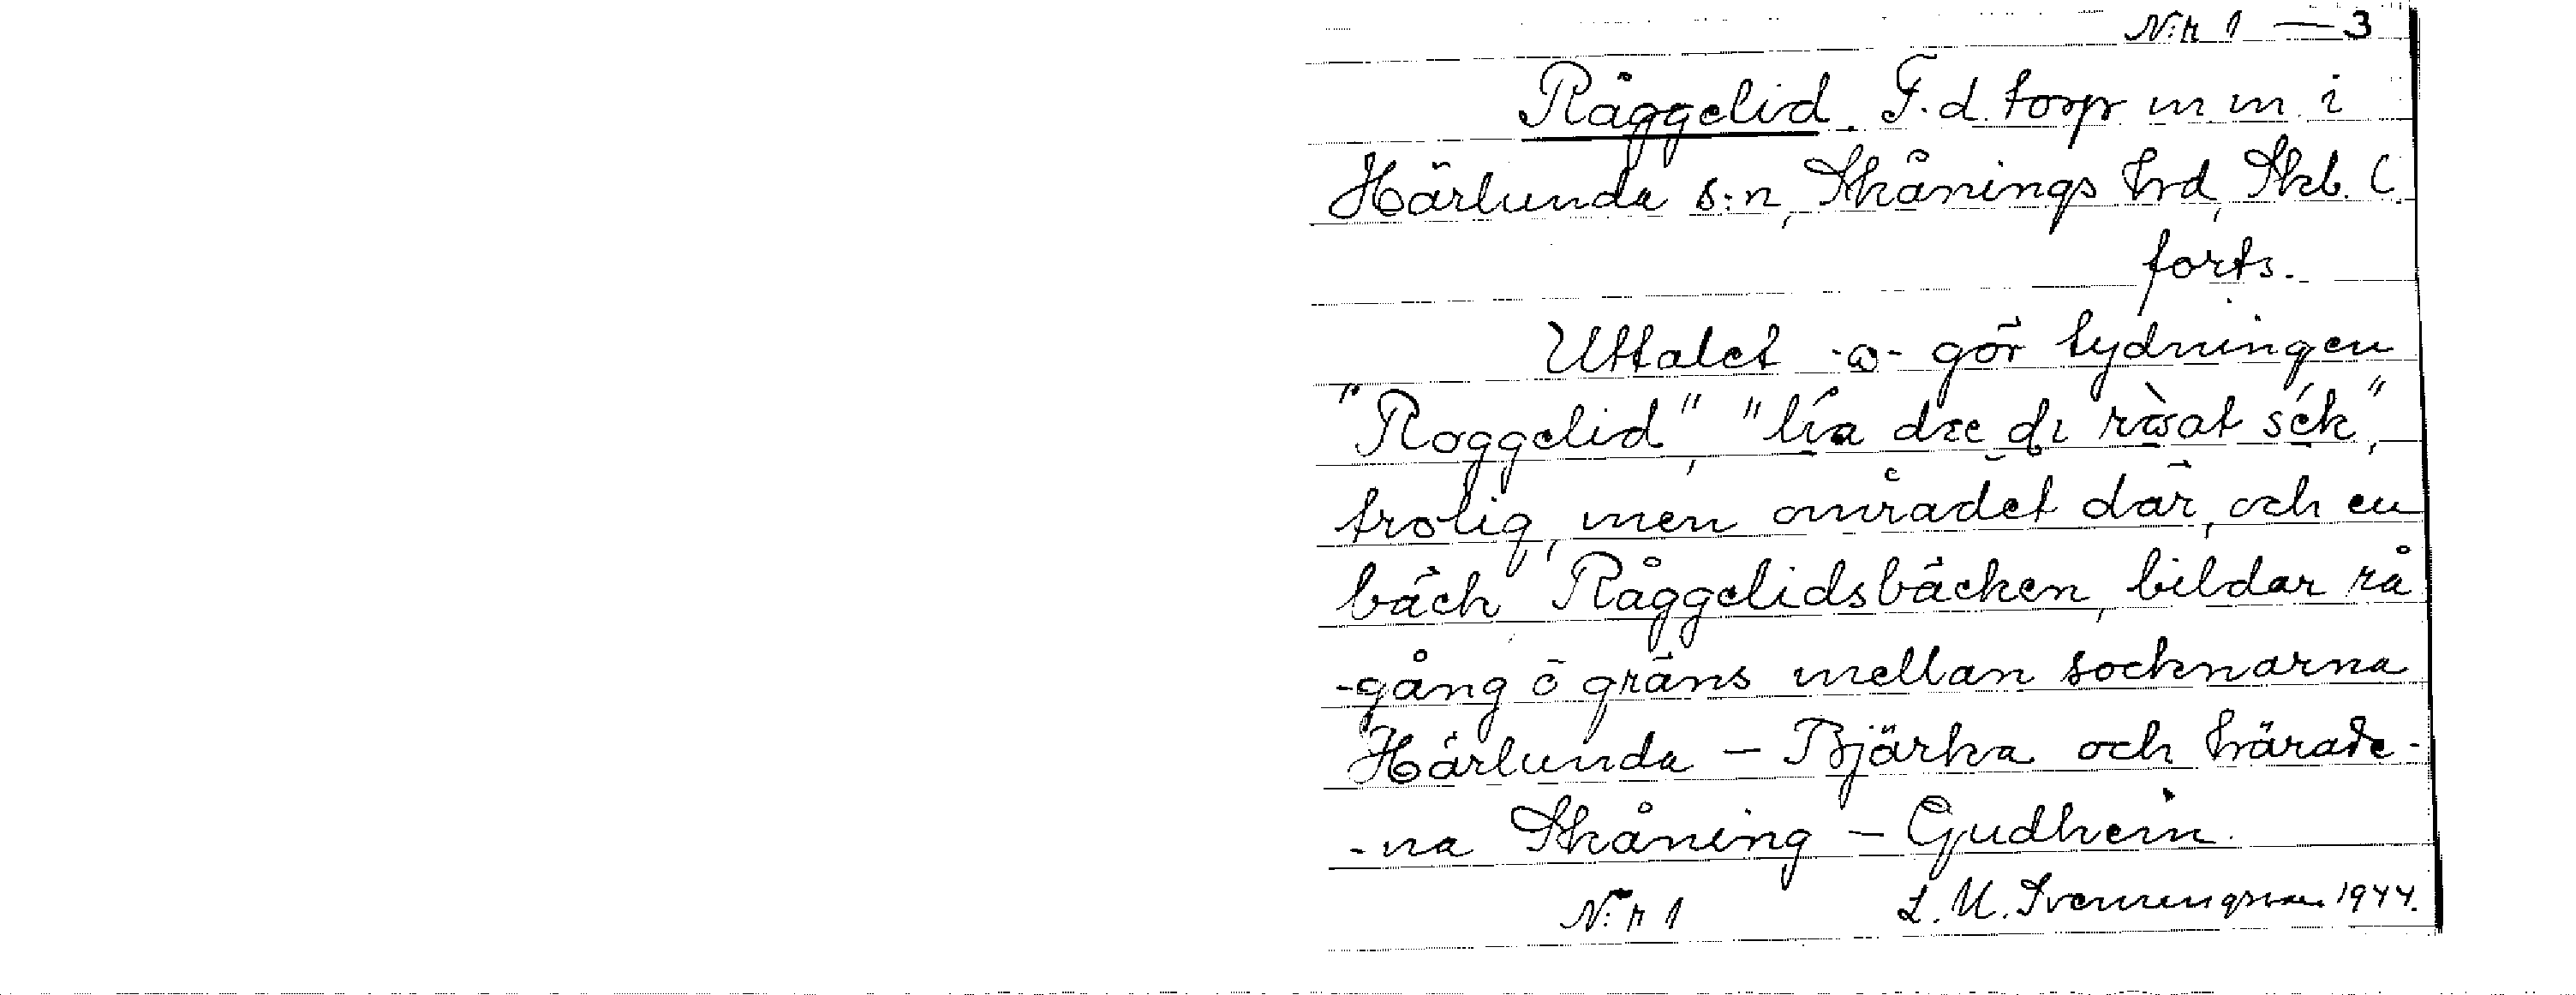 N:r 1 — 3
Råggelid. F.d. torp m m i
Härlunda s:n, Skånings hrd, Skb. l.
forts.
Uttalet -ɷ- gör tydningen
"Roggelid", "lia dæ dɩ rɷ̀at sék",
trolig, men området där, och en
bäck Råggelidsbäcken, bildar rå
-gång o gräns mellan socknarna
Härlunda – Bjärka och härade-
-na Skåning – Gudhem.
N:r 1 L. M. Svenungsson 1944.